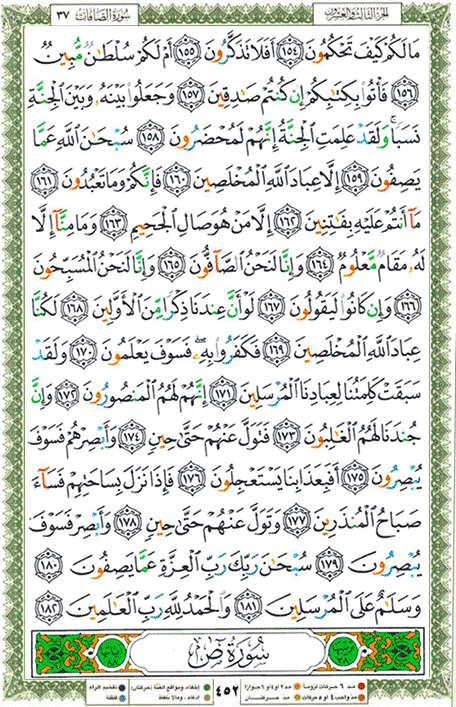 ٣٧ سُورَةُ الصَّافَّات الجزء الثالث والعشرون
مَا لَكُمْ كَيْفَ تَحْكُمُونَ ١٥٤ أَفَلَا تَذَكَّرُونَ ١٥٥ أَمْ لَكُمْ سُلْطَانٌ مُّبِينٌ
١٥٦ فَأْتُوا بِكِتَابِكُمْ إِن كُنتُمْ صَادِقِينَ ١٥٧ وَجَعَلُوا بَيْنَهُ وَبَيْنَ الْجِنَّةِ
نَسَبًا وَلَقَدْ عَلِمَتِ الْجِنَّةُ إِنَّهُمْ لَمُحْضَرُونَ ١٥٨ سُبْحَانَ اللَّهِ عَمَّا
يَصِفُونَ ١٥٩ إِلَّا عِبَادَ اللَّهِ الْمُخْلَصِينَ ١٦٠ فَإِنَّكُمْ وَمَا تَعْبُدُونَ ١٦١
مَا أَنتُمْ عَلَيْهِ بِفَاتِنِينَ ١٦٢ إِلَّا مَنْ هُوَ صَالِ الْجَحِيمِ ١٦٣ وَمَا مِنَّا إِلَّا
لَهُ مَقَامٌ مَّعْلُومٌ ١٦٤ وَإِنَّا لَنَحْنُ الصَّافُّونَ ١٦٥ وَإِنَّا لَنَحْنُ الْمُسَبِّحُونَ
١٦٦ وَإِن كَانُوا لَيَقُولُونَ ١٦٧ لَوْ أَنَّ عِندَنَا ذِكْرًا مِّنَ الْأَوَّلِينَ ١٦٨ لَكُنَّا
عِبَادَ اللَّهِ الْمُخْلَصِينَ ١٦٩ فَكَفَرُوا بِهِ فَسَوْفَ يَعْلَمُونَ ١٧٠ وَلَقَدْ
سَبَقَتْ كَلِمَتُنَا لِعِبَادِنَا الْمُرْسَلِينَ ١٧١ إِنَّهُمْ لَهُمُ الْمَنصُورُونَ ١٧٢ وَإِنَّ
جُندَنَا لَهُمُ الْغَالِبُونَ ١٧٣ فَتَوَلَّ عَنْهُمْ حَتَّى حِينٍ ١٧٤ وَأَبْصِرْهُمْ فَسَوْفَ
يُبْصِرُونَ ١٧٥ أَفَبِعَذَابِنَا يَسْتَعْجِلُونَ ١٧٦ فَإِذَا نَزَلَ بِسَاحَتِهِمْ فَسَاءَ
صَبَاحُ الْمُنذَرِينَ ١٧٧ وَتَوَلَّ عَنْهُمْ حَتَّى حِينٍ ١٧٨ وَأَبْصِرْ فَسَوْفَ
يُبْصِرُونَ ١٧٩ سُبْحَانَ رَبِّكَ رَبِّ الْعِزَّةِ عَمَّا يَصِفُونَ ١٨٠
وَسَلَامٌ عَلَى الْمُرْسَلِينَ ١٨١ وَالْحَمْدُ لِلَّهِ رَبِّ الْعَالَمِينَ ١٨٢
سُورَةُ ص
مد ٦ حركات لزوماً مد ٢ أو ٤ أو ٦ جوازاً ٤٥٢ إخفاء، ومواقع الغنة (حركتان) تفخيم الراء
مد واجب ٤ أو ٥ حركات مد حركتان إدغام، وما لا يلفظ قلقلة